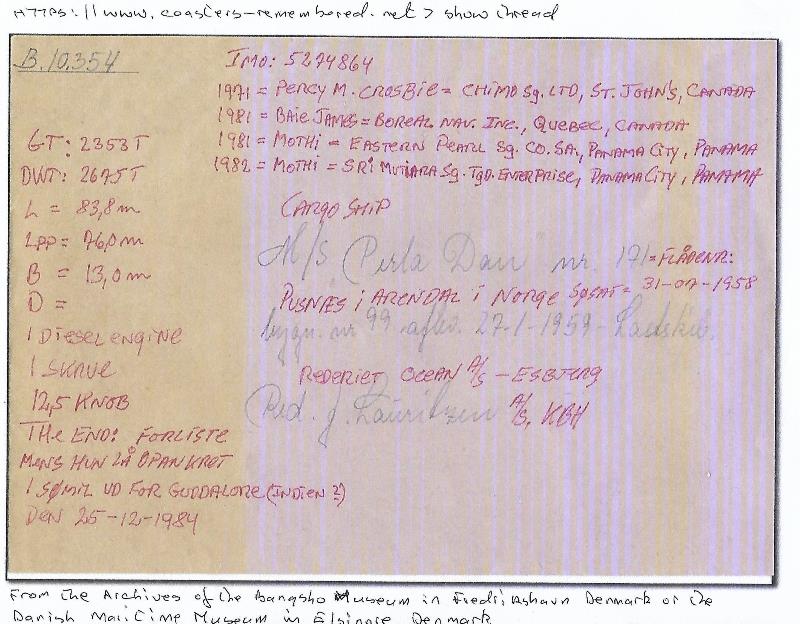 HTTPS://www.coasters-remembered.net > show thread
B.10.354
IMO: 5274864
1971 = PERCY M. CROSBIE = CHIMO Sg. LTD, ST. JOHN'S, CANADA
1981 = BAIE JAMES = BOREAL NAV. INC., QUEBEC, CANADA
1981 = MOTHI = EASTERN PEARL Sg. CO. SA, PANAMA CITY, PANAMA
1982 = MOTHI = SRI MUTIARA Sg. TgD. ENTERPRISE, PANAMA CITY, PANAMA
GT: 2353T
DWT: 2675T
L = 83,8m
LPP = 76,0m
B = 13,0m
D =
1 DIESELENGINE
1 SKRUE
12,5 KNOB
THE END: FORLISTE
MENS HUN LÅ OPANKRET
1 SØMIL UD FOR GUDDALORE (INDIEN ?)
DEN 25-12-1984
CARGO SHIP
M/S Perla Dan nr. 171 = FLÅDENR:
PUSNÆS I ARENDAL I NORGE SØSAT = 31-07-1958
bygn. nr 99 aflev. 27-1-1959 - Ladskib.
REDERIET OCEAN A/S - ESBJERG
Red. J. Lauritzen A/S, KBH
From the Archives of the Bangsbo Museum in Fredrikshavn Denmark or the
Danish Maritime Museum in Elsinore, Denmark